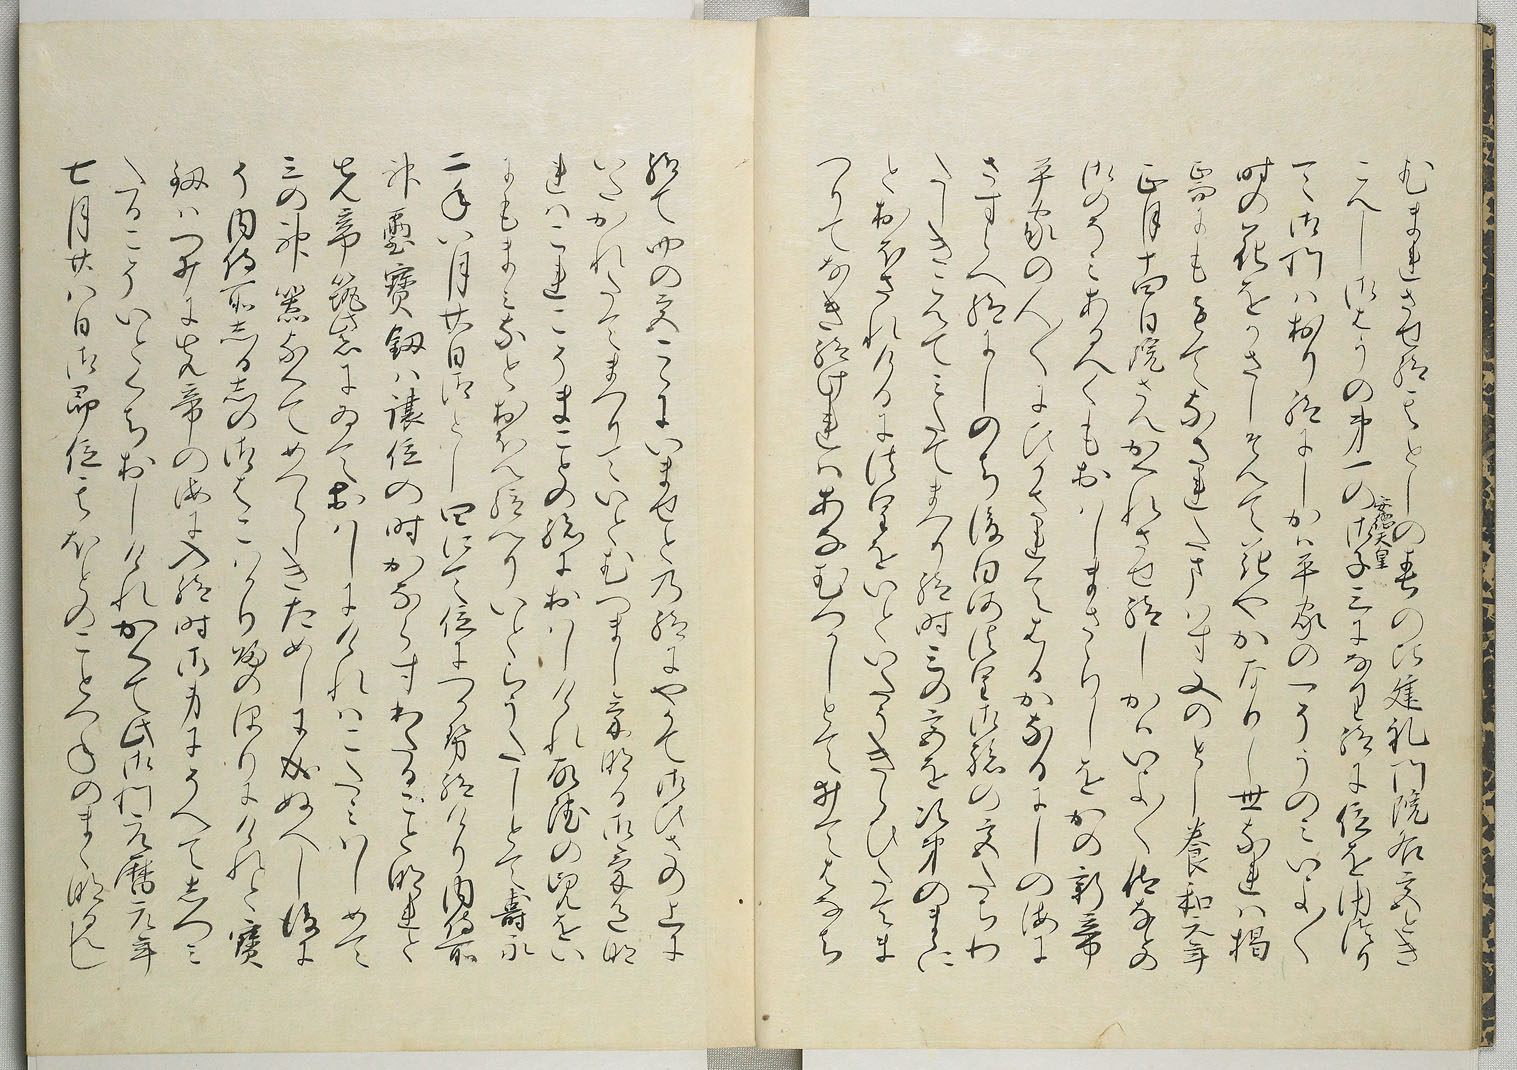 むまれさせ給ことしの春の比建礼門院后宮とき
こえし御はらの第一の御子三になり給に位をゆつり
安徳天皇
て御門はおり給にしかは平家の一そうのみいよ〱
時の花をかさしそへて花やかなりし世なれは掲
焉にももてなされたまはす又のとし養和元年
正月十四日院さへかくれさせ給しかはいよ〱位なとの
御のそみあるへくもおはしまさゝりしをかの新帝
平家の人〱にひかされてはるかなるにしの海に
さすらへ給にしのち後白河法皇御孫の宮たちわ
たしきこえてみたてまつり給時三の宮を次第のまゝに
とおほされけるに法皇をいといたうきらひたてま
つりてなき給けれはあなむつかしとてゐてはなち
給て四の宮こゝにいませとの給にやかて御ひさの上に
いたかれたてまつりていとむつましけなる御けしきな
れはこれこそまことの孫におはしけれ故院の児をい
にもまみなとおほえ給へりいとらうたしとて壽永
二年八月廿日御とし四にて位につき給けり内侍所
神璽寶釼は譲位の時かならすわたることなれと
先帝筑紫におはしにけれはこたみはしめて
三の神器なくてめつらしきためしに成ぬへし後に
そ内侍所しるしの御はこはかり帰のほりにけれと寶
釼はつゐに先帝の海に入給時御身にそへてしつみ
たるこそいとくちおしけれかくて此御門元暦元年
七月廿八日御即位そのほとのことつねのまゝなるへし